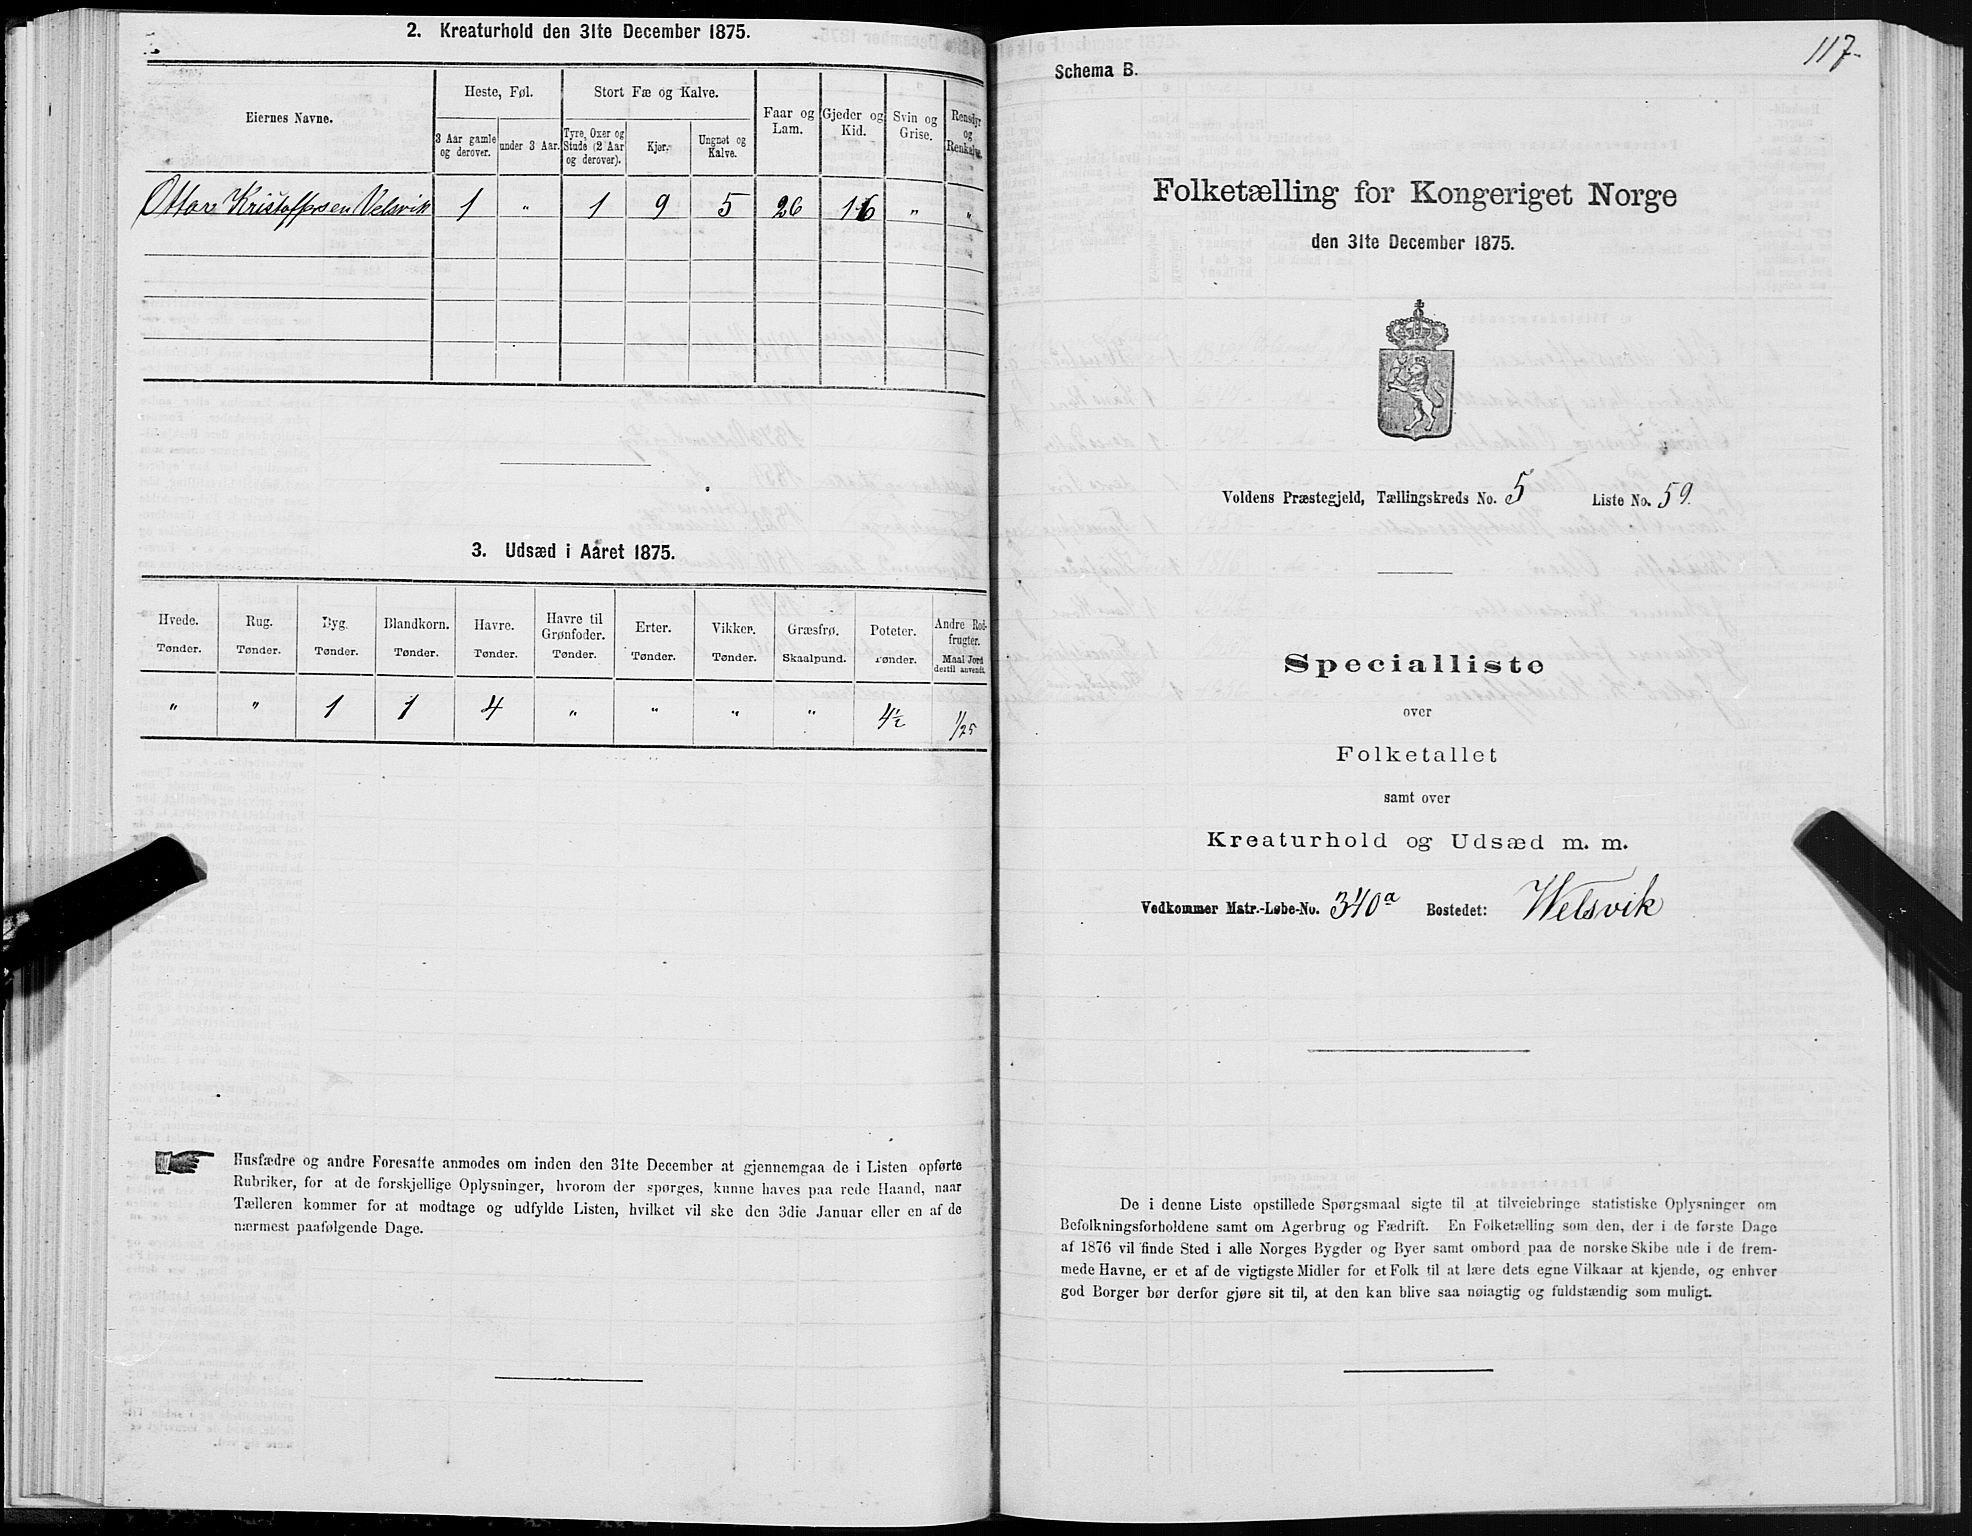 2. Kreaturhold den 31te December 1875.
Eiernes Navne.
Heste, Føl.
Stort Fæ og Kalve.
Faar og Lam.
Gjeder og Kid.
Svin og Grise.
Rensdyr og Renkalve.
3 Aar gamle og derover.
under 3 Aar.
Tyre, Oxer og Stude (2 Aar og derover).
Kjør.
Ungnøt og Kalve.
Ottar Kristoffersen Velsvik 1 " 1 9 5 26 16 " "
3. Udsæd i Aaret 1875.
Hvede. Rug. Byg. Blandkorn. Havre. Havre til Grønfoder. Erter. Vikker. Græsfrø. Poteter. Andre Rodfrugter.
Tønder. Tønder. Tønder. Tønder. Tønder. Tønder. Tønder. Tønder. Skaalpund. Tønder. Maal Jord dertil anvendt.
" " 1 1 4 " " " " 4½ 1/25
Husfædre og andre Foresatte anmodes om inden den 31te December at gjennemgaa de i Listen opførte
Rubriker, for at de forskjellige Oplysninger, hvorom der spørges, kunne haves paa rede Haand, naar
Tælleren kommer for at modtage og udfylde Listen, hvilket vil ske den 3die Januar eller en af de
nærmest paafølgende Dage.
117.
Schema B.
Folketælling for Kongeriget Norge
den 31te December 1875.
Voldens Præstegjeld, Tællingskreds No. 5 Liste No. 59.
Specialliste
over
Folketallet
samt over
Kreaturhold og Udsæd m. m.
Vedkommer Matr.-Løbe-No. 340a Bostedet: Welsvik
De i denne Liste opstillede Spørgsmaal sigte til at tilveiebringe statistiske Oplysninger om
Befolkningsforholdene samt om Agerbrug og Fædrift. En Folketælling som den, der i de første Dage
af 1876 vil finde Sted i alle Norges Bygder og Byer samt ombord paa de norske Skibe ude i de frem-
mede Havne, er et af de vigtigste Midler for et Folk til at lære dets egne Vilkaar at kjende, og enhver
god Borger bør derfor gjøre sit til, at den kan blive saa nøiagtig og fuldstændig som muligt.